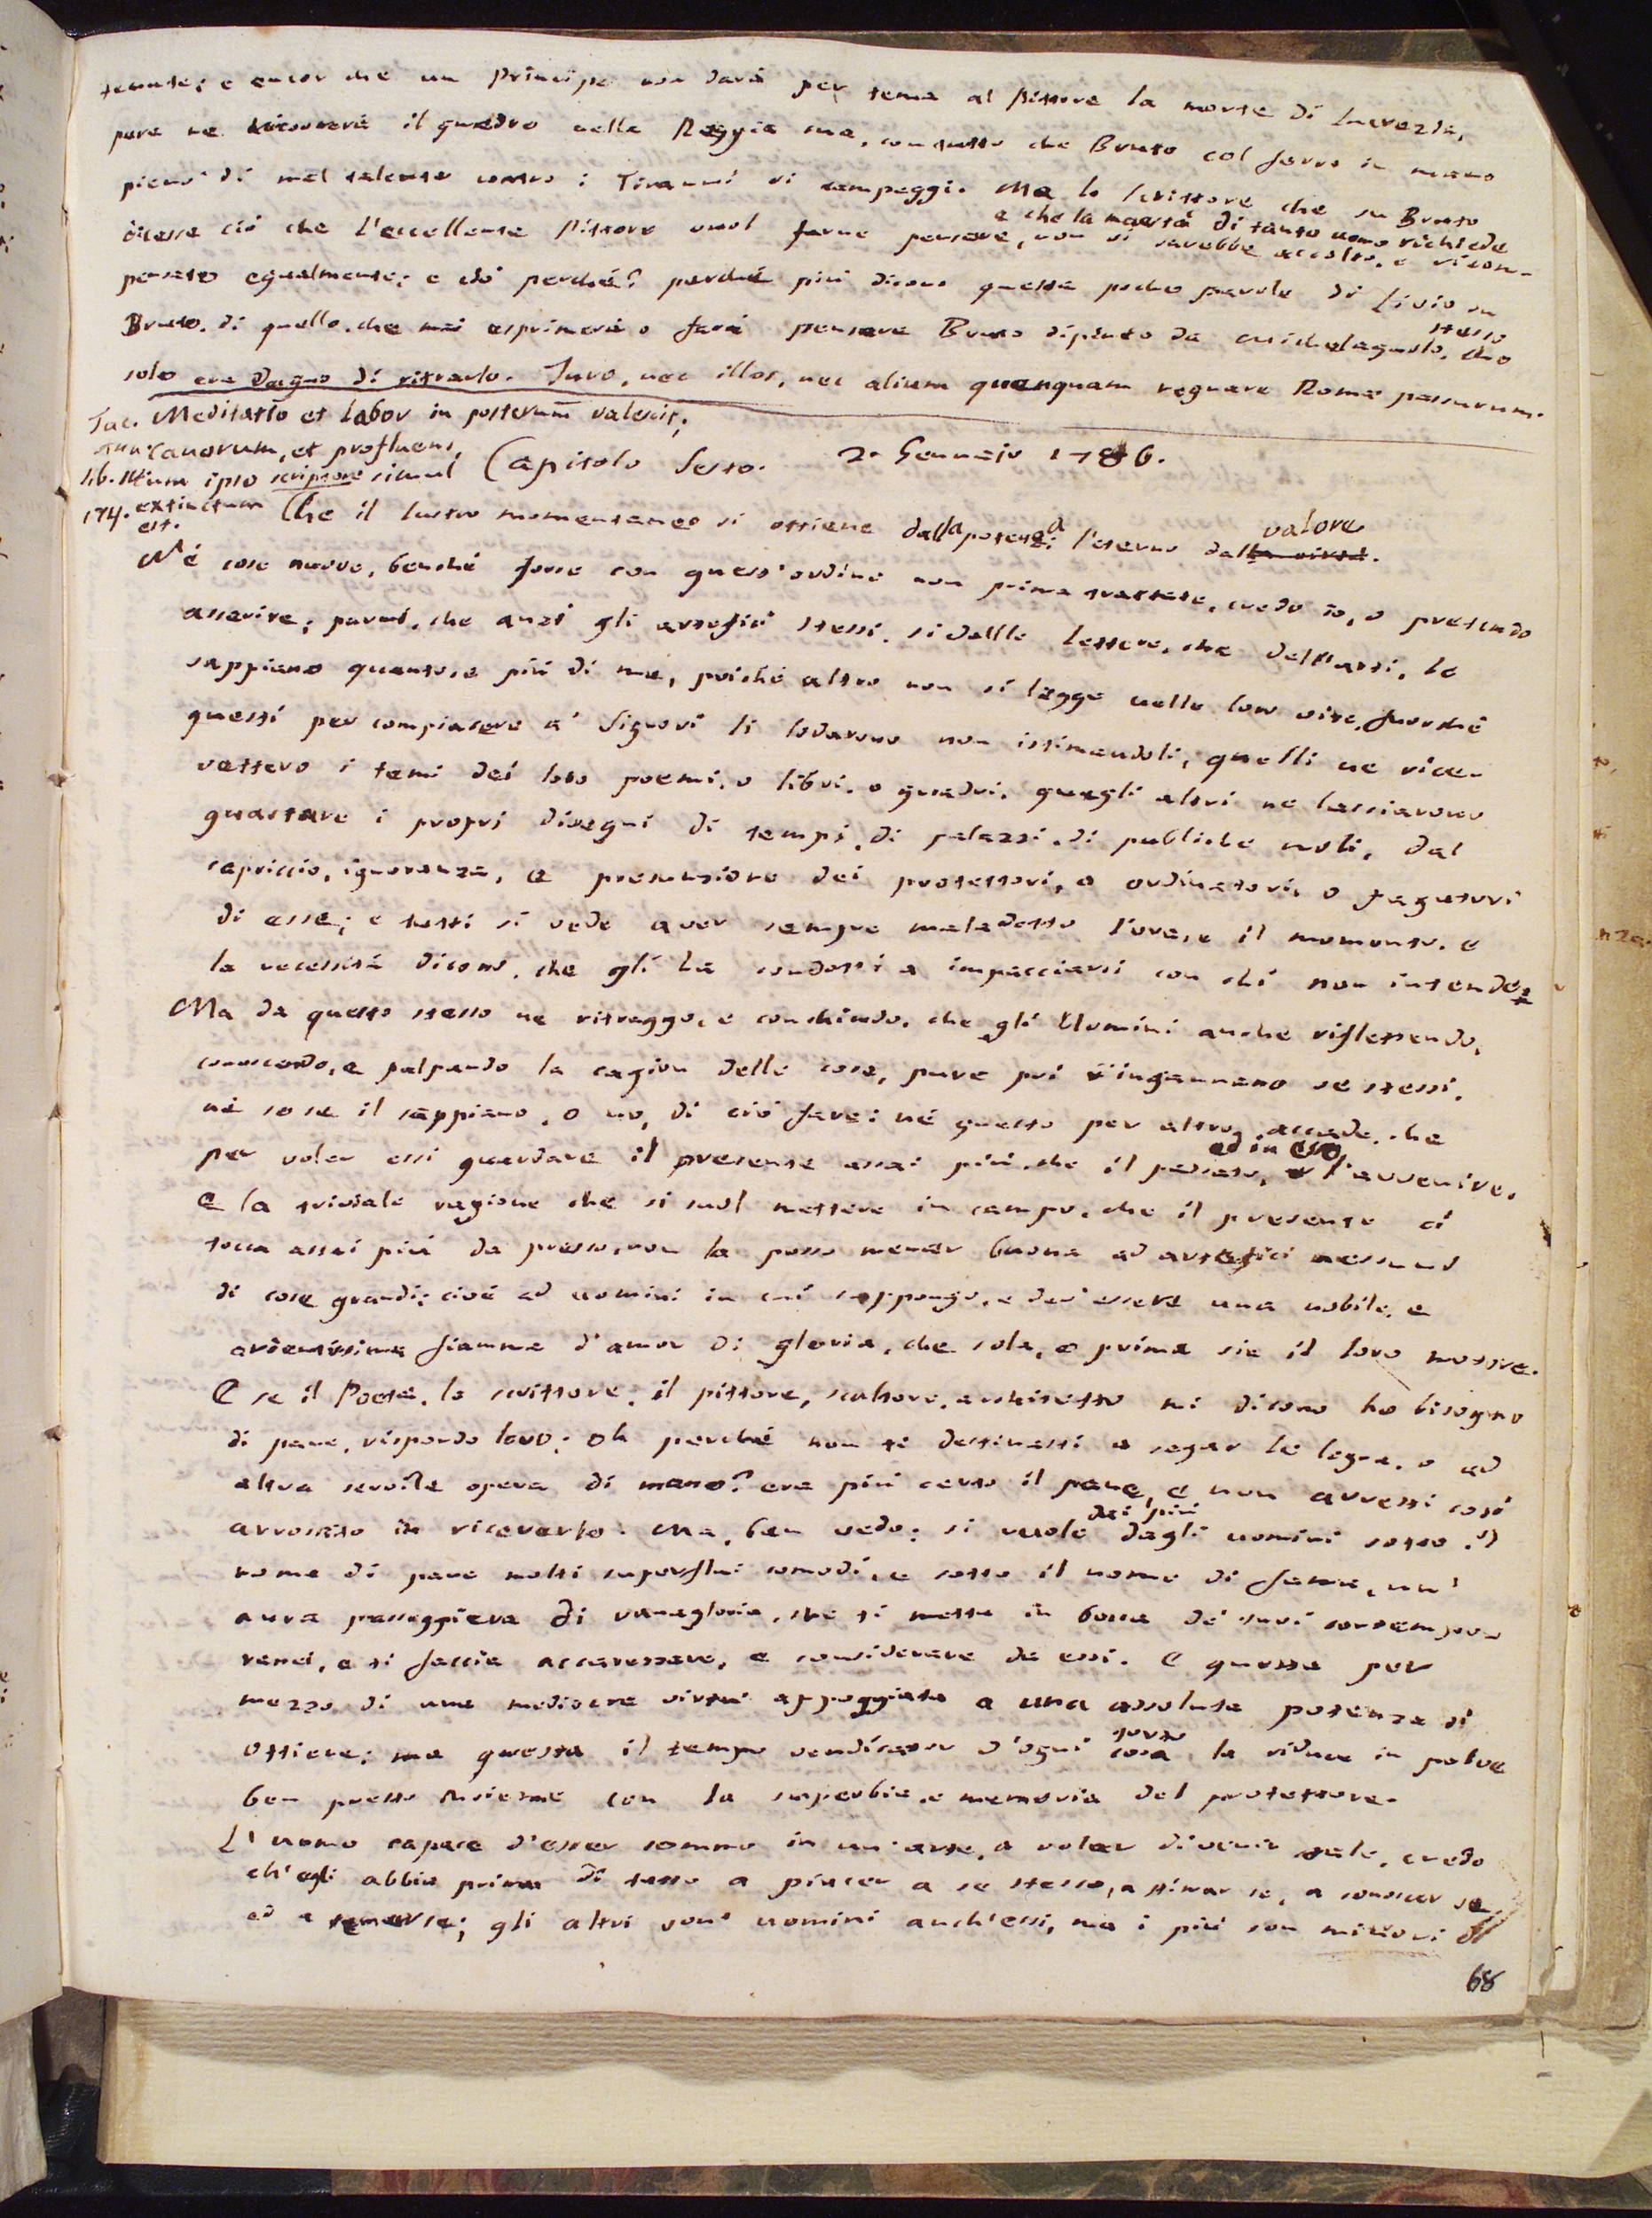 tenute; e ancor che un Principe non darà per tema al Pittore la morte di Lucrezia,
pure ne riceverà il quadro nella Reggia sua, contutto che Bruto col ferro in mano
pieno di mal talento contro i Tiranni vi campeggi. Ma lo scrittore che su Bruto
e che la maestà di tanto uomo richiede
dicesse ciò che l'eccellente Pittore vuol farne pensare, non si sarebbe accolto, e ricom-
pensato egualmente; e ciò perché? perché più dicono queste poche parole di Livio su
Bruto, di quello, che mai esprimerà o farà pensare Bruto dipinto da Michelagnolo, che
stesso
solo era degno di ritrarlo. Juro, nec illos, nec alium quenquam regnare Romæ passurum.
Tac. Meditatio et labor in posterum valescit;
Ann. canorum, et profluens,
lib. 4 tum ipso scriptore simul
174. extinctum
est.
Capitolo Sesto. 2. Gennajo 1786.
Che il lustro momentaneo si ottiene dalla potenza l'eterno dal la virtù.
valore
Nè cose nuove, benché forse con quest'ordine non prima trattate, credo io, o pretendo
asserire; parmi, che anzi gli artefici stessi, sì delle Lettere, che dell'arti, le
sappiano quanto, e più di me, poiché altro non si legge nelle loro vite, fuorché
questi per compiacere a' Signori li lodarono non istimandoli, quelli ne rice-
vettero i temi dei loro poemi, o libri, o quadri, quegli altri ne lasciarono
guastare i propri disegni di tempi, di palazzi, di publiche moli, dal
capriccio, ignoranza, e presunzione dei protettori, o ordinatori, o pagatori
di esse; e tutti si vede aver sempre maladetto l'ora, e il momento, e
la necessità dicono, che gli ha condotti a impacciarsi con chi non intende.
Ma da questo stesso ne ritraggo, e conchiudo, che gli Uomini anche riflettendo,
conoscendo, e palpando la cagion delle cose, pure poi s'ingannano se stessi,
né so se il sappiano, o no, di ciò fare; né questo per altro accade, che
per voler essi guardare il presente assai più, che il passato, e l'avvenire.
ed in esso
E la triviale ragione che si suol mettere in campo, che il presente ci
tocca assai più da presso, non la posso menar buona ad artefici nessuno
di cose grandi; cioè ad uomini in cui suppongo, e dev'essere una nobile, e
ardentissima fiamma d'amor di gloria, che sola, e prima sia il loro motore.
E se il Poeta, lo scrittore, il pittore, scultore, architetto mi dicono ho bisogno
di pane, rispondo loro; Oh perché non ti destinasti a segar le legna, o ad
altra servile opera di mano? era più certo il pane, e non avresti così
arrossito in riceverlo. Ma, ben vedo; si vuole dagli uomini sotto il
dai più
nome di pane molti superflui comodi, e sotto il nome di fama, un'
aura passeggiera di vanagloria, che ti metta in bocca de' tuoi contempo-
ranei, e ti faccia accarezzare, e considerare da essi. E questa per
mezzo di una mediocre virtù appoggiata a una assoluta potenza si
ottiene; ma questa il tempo vendicator d'ogni cosa, la riduce in polve
torto
ben presto insieme con la superbia, e memoria del protettore.
L'uomo capace d'esser sommo in un'arte, a voler divenir tale, credo
ch'egli abbia prima di tutto a piacer a se stesso, a stimar se, a conoscer se,
ed a temer se; gli altri son' uomini anch'essi, ma i più son minori di
68